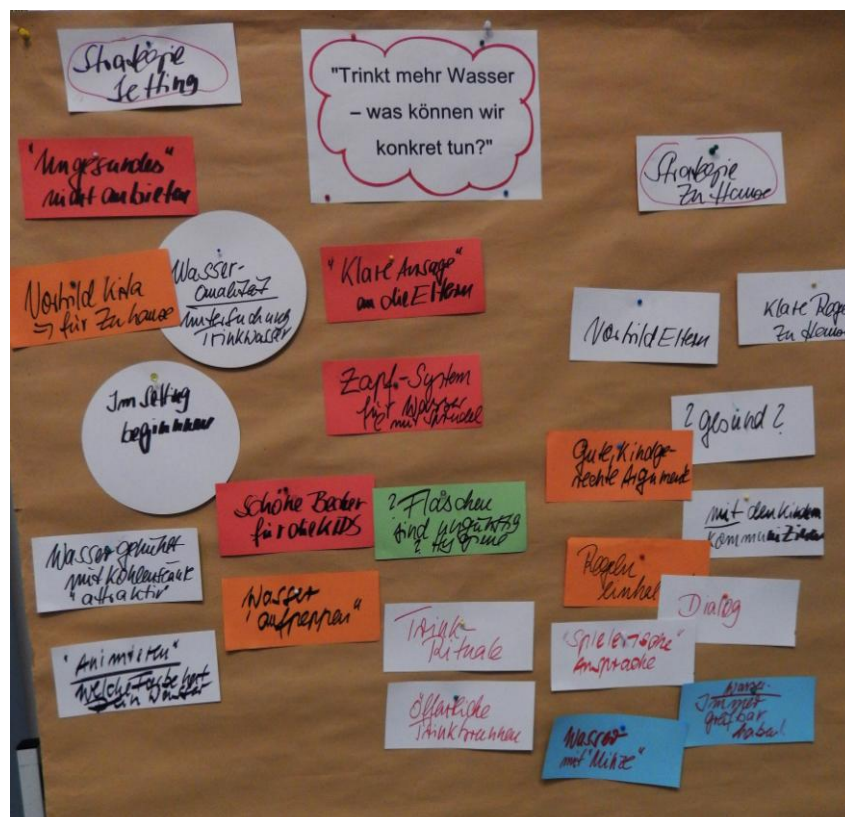 Strategie
Setting
"Trinkt mehr Wasser
– was können wir
konkret tun?"
Strategie
Zu Hause
"Ungesundes"
nicht anbieten
Vorbild Kita
→ für Zuhause
Wasser-
qualität
Untersuchung
Trinkwasser
"Klare Ansage"
an die Eltern
Vorbild Eltern
Klare Rege
Zu Hause
Im Setting
beginnen
Zapf-System
für Wasser
mit Sprudel
? gesund ?
Gute, kindge-
rechte Argument
Schöne Becher
für die KIDS
? Flaschen
sind ungünstig
? Hygiene
mit den Kindern
kommunizieren
Wasser gekühlt
mit Kohlensäure
"attraktiv"
Wasser
"aufpeppen"
Regeln
einhal
Dialog
Trink-
Rituale
"Spielerische"
Ansprache
"Animieren"
Welche Farbe hat
ein
Öffentliche
Trinkbrunnen
Wasser
mit "Minze"
Wasser
Immer
greifbar
haben!